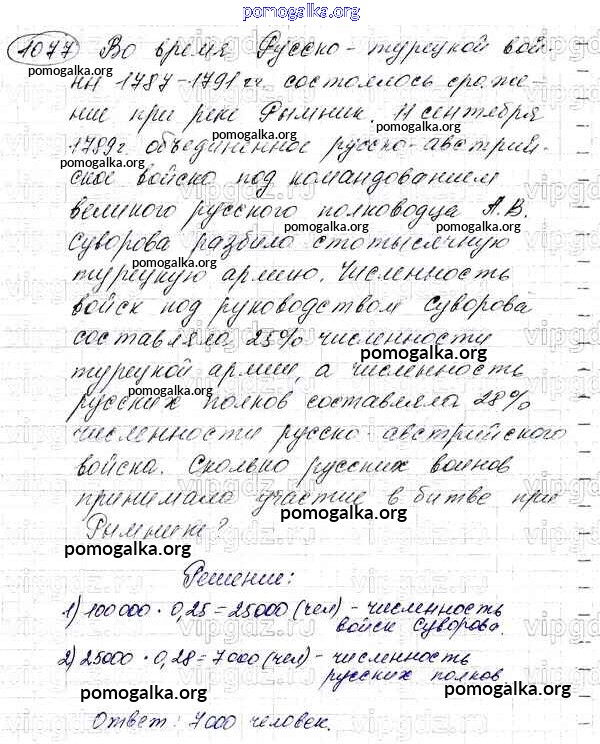 pomogalka.org
1077 Во время Русско-турецкой вой-
ны 1787-1791 гг. состоялось сраже-
pomogalka.org
pomogalka.org
ние при реке Рымник. 11 сентября
pomogalka.org
1789 г. объединённое русско-австрий-
pomogalka.org
ское войско под командованием
pomogalka.org
великого русского полководца А.В.
pomogalka.org
Суворова разбило стотысячную
pomogalka.org
турецкую армию. Численность
войск под руководством Суворова
pomogalka.org
составляла 25% численности
pomogalka.org
турецкой армии, а численность
pomogalka.org
русских полков составляла 28%
численности русско-австрийского
войска. Сколько русских воинов
pomogalka.org
принимало участие в битве при
pomogalka.org
Рымнике?
pomogalka.org
Решение:
1) 100000 · 0,25 = 25000 (чел) - численность
войск Суворова.
pomogalka.org
2) 25000 · 0,28 = 7000 (чел) - численность
русских полков
pomogalka.org
pomogalka.org
Ответ: 7000 человек.